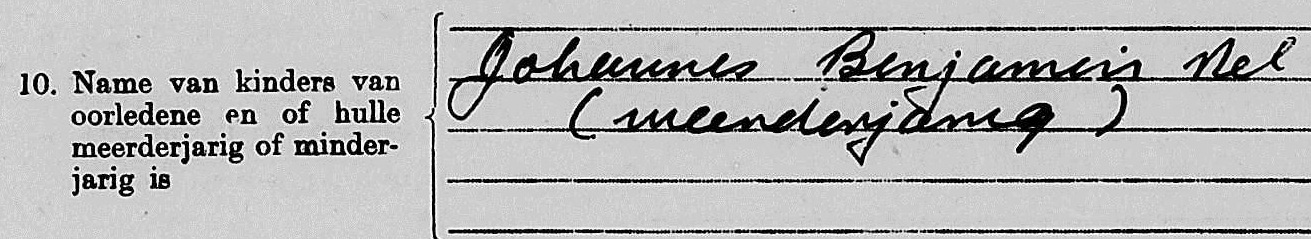 10. Name van kinders van
oorledene en of hulle
meerderjarig of minder-
jarig is
Johannes Benjamin Nel
(meerderjarig)